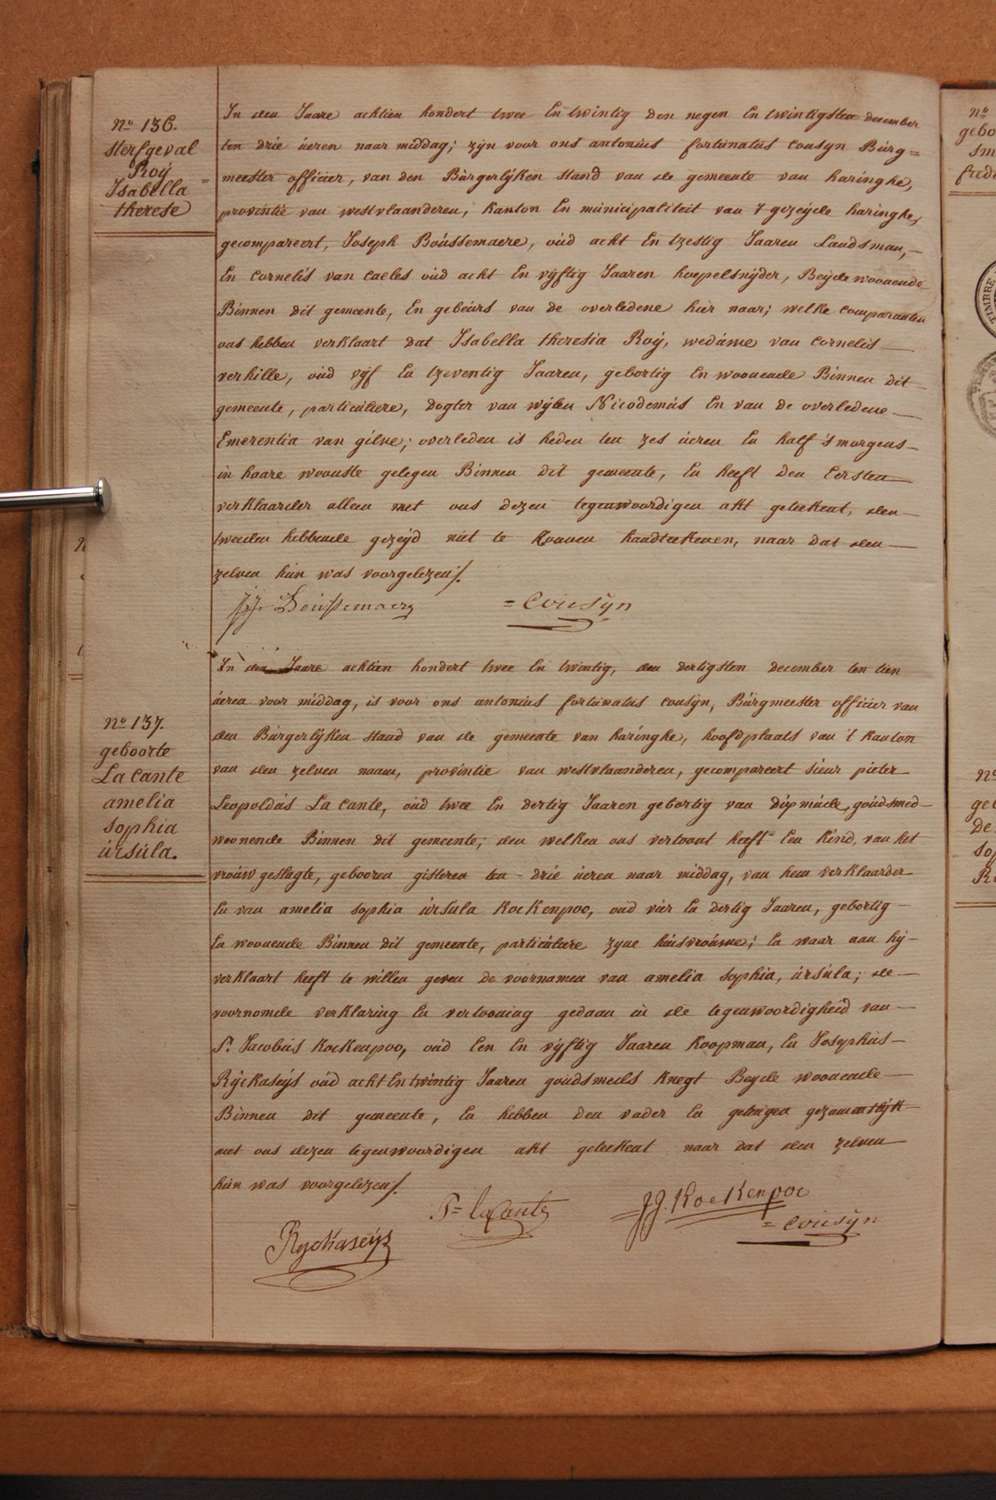 No. 136.
sterfgeval
Roÿ
Isabella =
therese
In den Jaare achtien hondert twee En twintig den negen En twintigsten december
ten drie ùeren naar middag; zÿn voor ons antoniùs fortùnatùs coùsyn Bùrg=
meester officier, van den Bùrgerlÿken stand van de gemeente van haringhe,
provintie van westvlaanderen, Kanton En mùnicipaliteit van 't gezeÿde haringhe,
gecompareert, Joseph Boùssemaere, oùd acht En tzestig Jaaren Landsman,
En Cornelis van Caeles oùd acht En vÿftig Jaaren hoepelsnÿder, Beÿde woonende
Binnen dit gemeente, En gebùers van de overledene hier naar; welke comparanten
ons hebben verklaart dat Isabella theresia Roÿ, wedùwe van Cornelis
verhille, oùd vÿf En tzeventig Jaaren, gebortig En woonende Binnen dit
gemeente, particùliere, dogter van wÿlen Nicodemùs En van de overledene
Emerentia van gilve; overleden is heden ten zes ùeren En half 's morgens
in haare woonste gelegen Binnen dit gemeente, En heeft den Eersten
verklaarder alleen met ons dezen tegenwoordigen akt geteekent, den
tweeden hebbende gezeÿd niet te konnen handteekenen, naar dat den
zelven hùn was voorgelezen/.
J.J. Boùssemaere = Coùsÿn
No. 137.
geboorte
La Cante
amelia
sophia
ùrsùla.
In den Jaare achtien hondert twee En twintig, den dertigsten december ten tien
ùeren voor middag, is voor ons antoniùs fortùnatùs coùsyn, Bùrgmeester officier van
den Bùrgerlÿken stand van de gemeente van haringhe, hoofdplaats van 't Kanton
van den zelven naam, provintie van westvlaanderen, gecompareert sieur pieter
Leopoldùs La Cante, oùd twee En dertig Jaaren gebortig van dixmùde, goùdsmid
woonende Binnen dit gemeente; den welken ons vertoont heeft Een kind, van het
vroùw geslagte, geboren gisteren ten drie ùeren naar middag, van hem verklaarder
En van amelia sophia ùrsùla KocKenpoo, oùd vier En dertig Jaaren, gebortig
En woonende Binnen dit gemeente, particùliere zyne hùisvroùwe; En waar aan hÿ
verklaart heeft te willen geven de voornamen van amelia sophia, ùrsùla; de
voornomde verklaring En vertooning gedaan in de tegenwoordigheid van
Sr. Jacobùs KocKenpoo, oùd Een En vÿftig Jaaren Koopman, En Josephùs
Rÿckaseÿs oùd acht En twintig Jaaren goùdsmeds knegt Beyde woonende
Binnen dit gemeente, En hebben den vader En getùigen gezamantlÿk
met ons dezen tegenwoordigen akt geteekent naar dat den zelven
hùn was voorgelezen/.
P= laCante JJ. KocKenpoo
= Coùsÿn
Ryckaseÿs
No.
gebo
TIMBRE